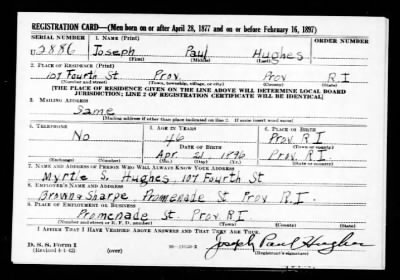 REGISTRATION CARD—(Men born on or after April 28, 1877 and on or before February 16, 1897)
SERIAL NUMBER 1. NAME (Print) ORDER NUMBER
U2886 Joseph Paul Hughes
(First) (Middle) (Last)
2. PLACE OF RESIDENCE (Print)
107 Fourth St. Prov. Prov R.I
(Number and street) (Town, township, village, or city) (County) (State)
[THE PLACE OF RESIDENCE GIVEN ON THE LINE ABOVE WILL DETERMINE LOCAL BOARD
JURISDICTION; LINE 2 OF REGISTRATION CERTIFICATE WILL BE IDENTICAL]
3. MAILING ADDRESS
Same
[Mailing address if other than place indicated on line 2. If same insert word same]
4. TELEPHONE 5. AGE IN YEARS 6. PLACE OF BIRTH
No 46 Prov. R.I
DATE OF BIRTH
Apr. 21 1896 Prov R.I.
(Exchange) (Number) (Mo.) (Day) (Yr.)
7. NAME AND ADDRESS OF PERSON WHO WILL ALWAYS KNOW YOUR ADDRESS
Myrtle S. Hughes, 107 Fourth St
8. EMPLOYER'S NAME AND ADDRESS
Brown & Sharpe Promenade St Prov R.I.
9. PLACE OF EMPLOYMENT OR BUSINESS
Promenade St. Prov RI
(Number and street or R. F. D. number) (Town) (County) (State)
I AFFIRM THAT I HAVE VERIFIED ABOVE ANSWERS AND THAT THEY ARE TRUE.
D. S. S. Form 1
(Revised 4-1-42) (over) Joseph Paul Hughes
(Registrant's signature)